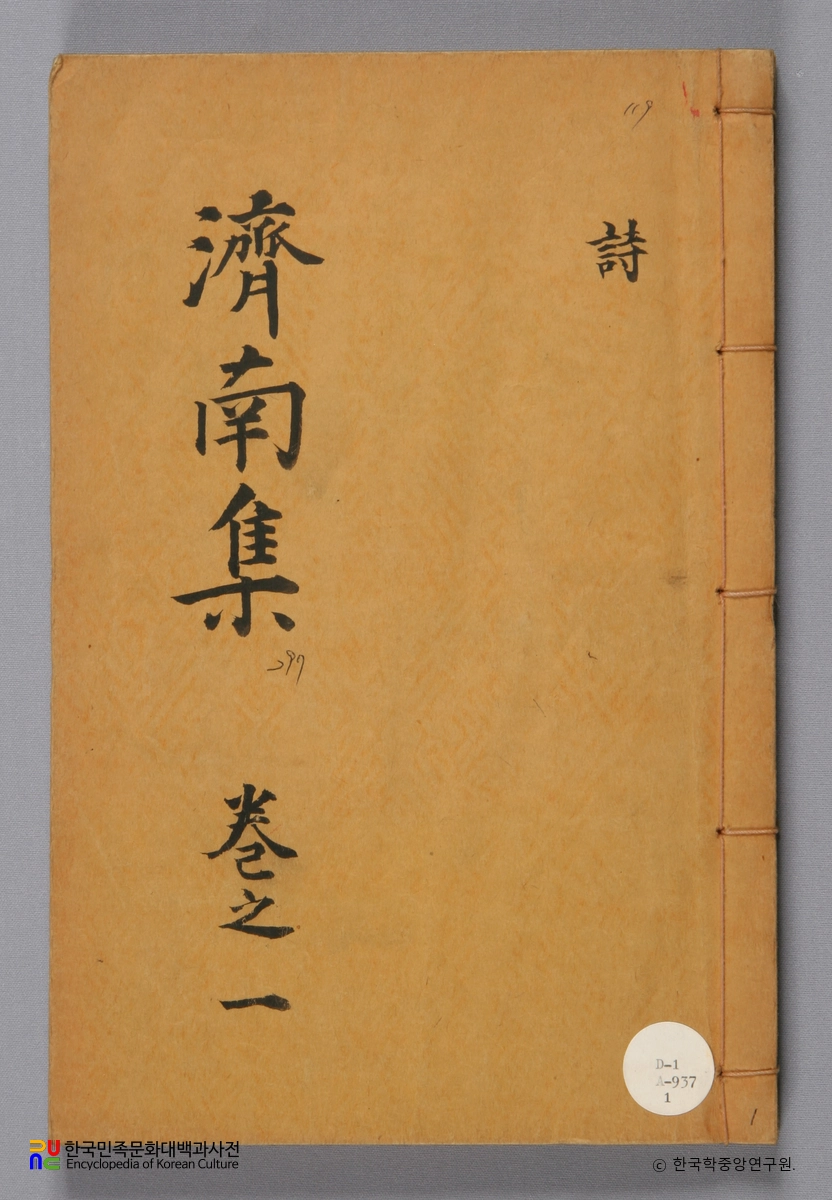 119
詩
濟南集
卷之一
D-1
A-937
1
1
한국민족문화대백과사전
Encyclopedia of Korean Culture
© 한국학중앙연구원.